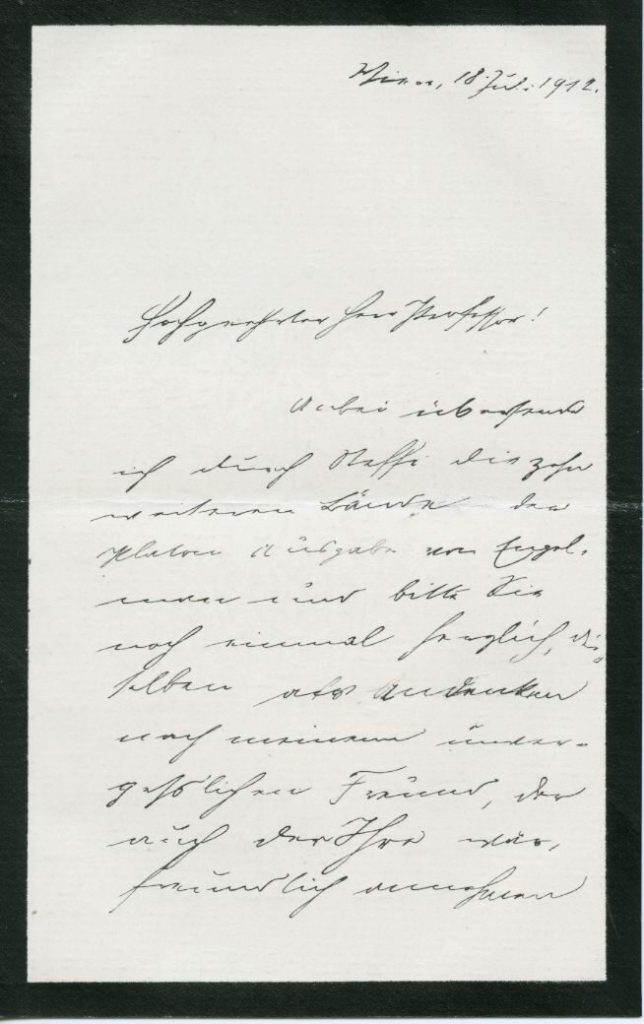 Wien, 18. Juli 1912.
Hochgeehrter Herr Professor!
Anbei übersende
ich durch Steffi die zehn
weiteren Bände der
Platon Ausgabe von Engel-
mann und bitte Sie
noch einmal herzlich, die-
selben als Andenken
nach meinem unver-
gesslichen Freund, der
auch der Ihre war,
freundlich annehmen